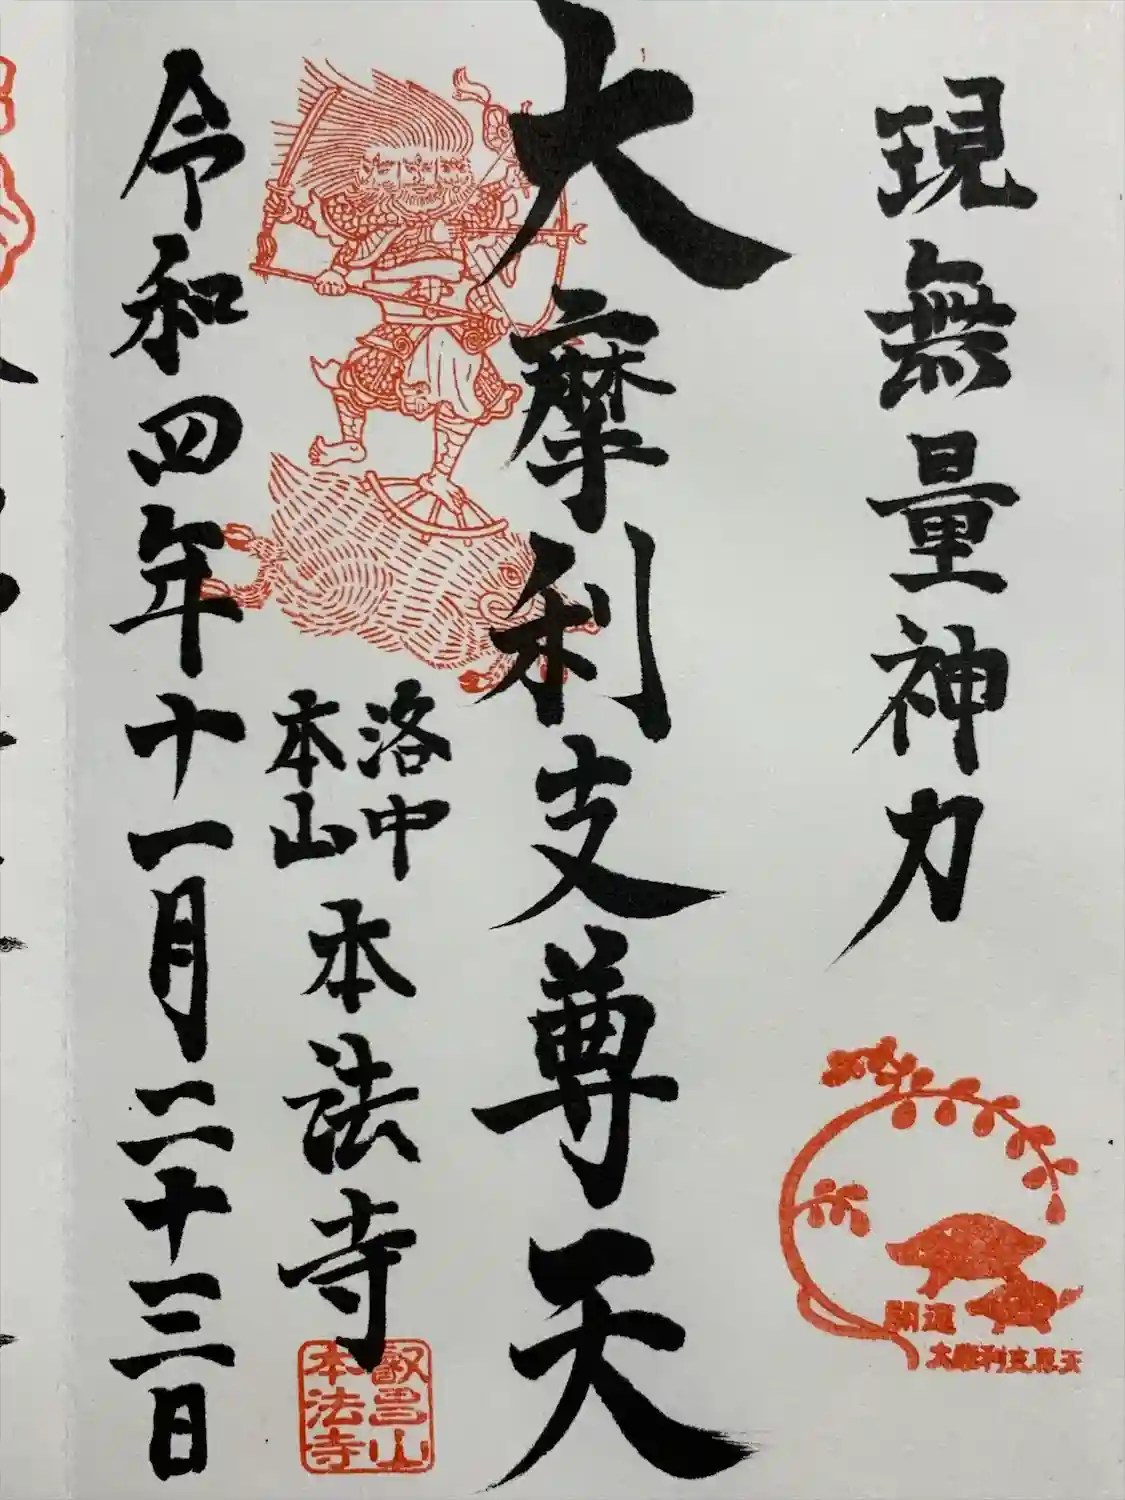 現無量神力
開運
大摩利支尊天
大摩利支尊天
洛中
本山
本法寺
叡昌山
本法寺
令和四年十一月二十三日